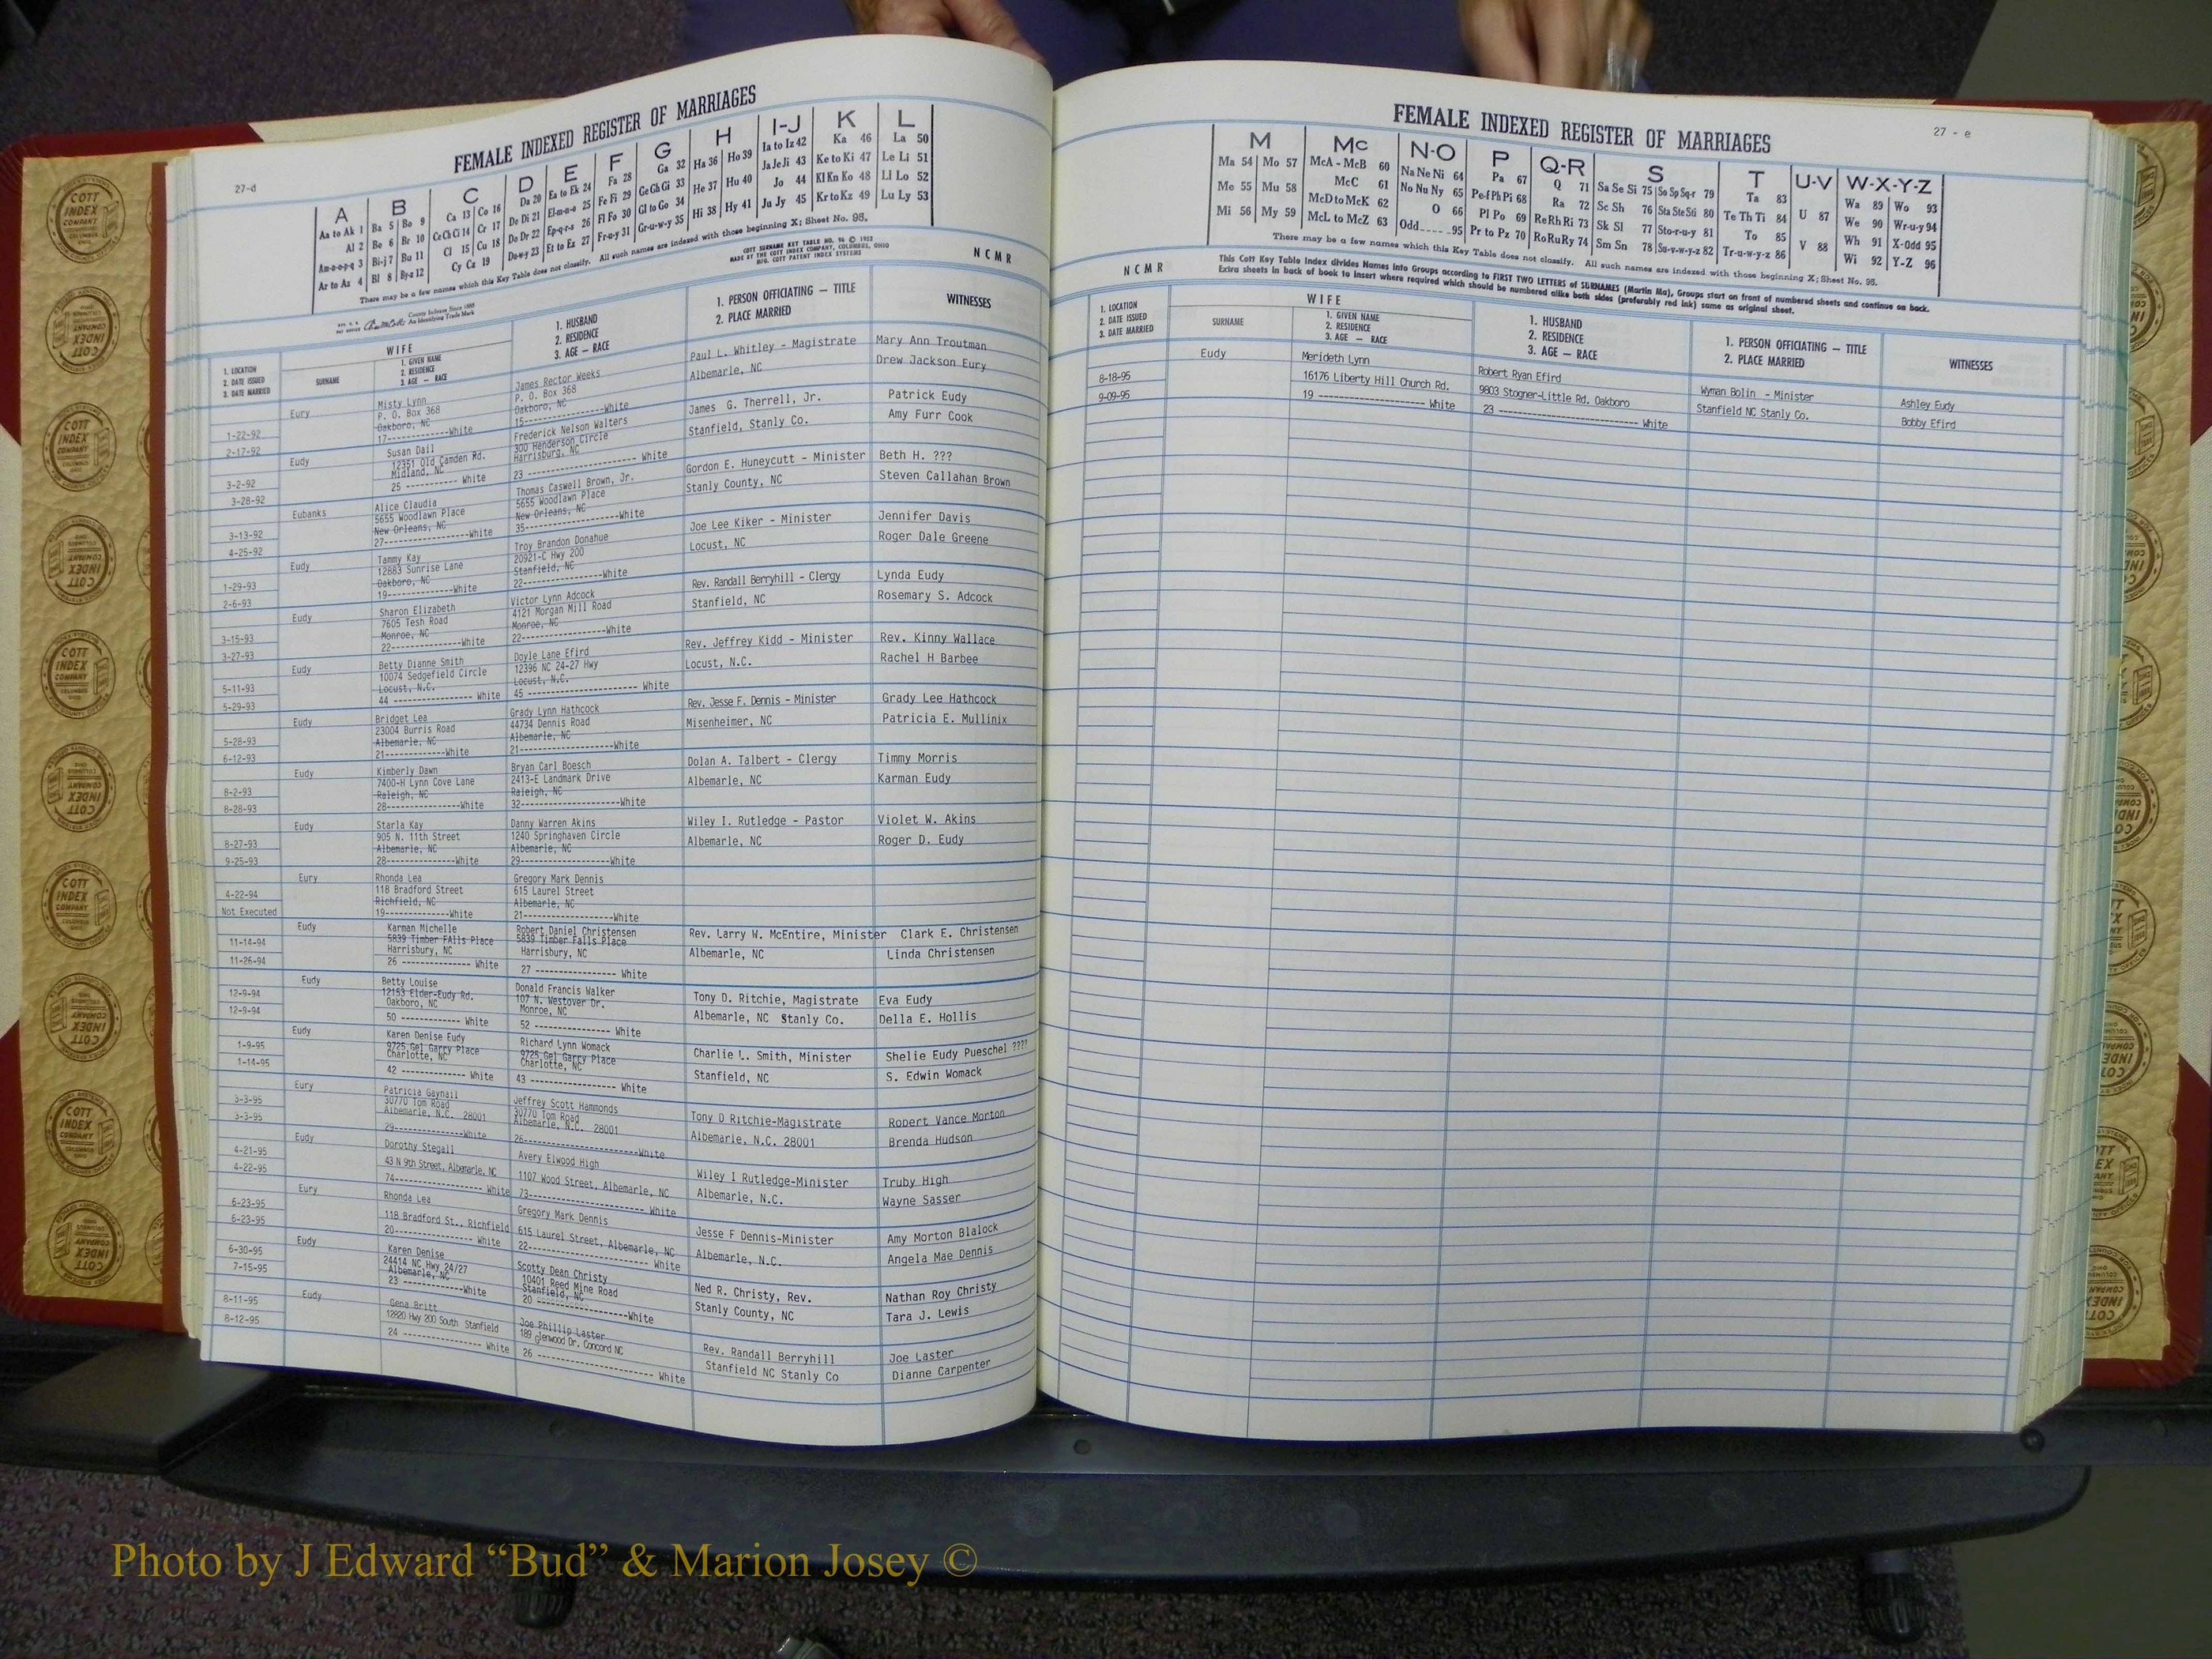 FEMALE INDEXED REGISTER OF MARRIAGES
27-d
A B C D E F G H I-J K L
Aa to Ak 1 Ba 5 Bo 9 Ca 13 Co 16 Da 20 Ea to Ek 24 Fa 28 Ga 32 Ha 36 Ho 39 Ia to Iz 42 Ka 46 La 50
Al 2 Be 6 Br 10 Ce Ch Ci 14 Cr 17 De Di 21 El-m-n-o 25 Fe Fi 29 Ge Gh Gi 33 He 37 Hu 40 Ja Je Ji 43 Ke to Ki 47 Le Li 51
Am-n-o-p-q 3 Bi-j 7 Bu 11 Cl 15 Cu 18 Do Dr 22 Ep-q-r-s 26 Fl Fo 30 Gl to Go 34 Hi 38 Hy 41 Jo 44 Kl Kn Ko 48 Ll Lo 52
Ar to Az 4 Bl 8 By-z 12 Cy Cz 19 Du-w-y 23 Et to Ez 27 Fr-u-y 31 Gr-u-w-y 35 Ju Jy 45 Kr to Kz 49 Lu Ly 53
There may be a few names which this Key Table does not classify. All such names are indexed with those beginning X; Sheet No. 95.
COTT SURNAME KEY TABLE NO. 96 © 1953
MADE BY THE COTT INDEX COMPANY, COLUMBUS, OHIO
MFG. COTT PATENT INDEX SYSTEMS
County Indexes Since 1888
An Identifying Trade Mark
NCMR
1. LOCATION
2. DATE ISSUED
3. DATE MARRIED
WIFE
SURNAME
1. GIVEN NAME
2. RESIDENCE
3. AGE — RACE
1. HUSBAND
2. RESIDENCE
3. AGE — RACE
1. PERSON OFFICIATING — TITLE
2. PLACE MARRIED
WITNESSES
Eury Misty Lynn James Rector Weeks Paul L. Whitley - Magistrate Mary Ann Troutman
P. O. Box 368 P. O. Box 368 Albemarle, NC Drew Jackson Eury
1-22-92 Oakboro, NC Oakboro, NC
2-17-92 17------------White 15------------White
Eudy Susan Dail Frederick Nelson Walters James G. Therrell, Jr. Patrick Eudy
12351 Old Camden Rd. 300 Henderson Circle Stanfield, Stanly Co. Amy Furr Cook
3-2-92 Midland, NC Harrisburg, NC
3-28-92 25 ----------- White 23 ----------------- White
Eubanks Alice Claudia Thomas Caswell Brown, Jr. Gordon E. Huneycutt - Minister Beth H. ???
5655 Woodlawn Place 5655 Woodlawn Place Stanly County, NC Steven Callahan Brown
3-13-92 New Orleans, NC New Orleans, NC
4-25-92 27----------------White 35------------------White
Eudy Tammy Kay Troy Brandon Donahue Joe Lee Kiker - Minister Jennifer Davis
12883 Sunrise Lane 20921-C Hwy 200 Locust, NC Roger Dale Greene
1-29-93 Oakboro, NC Stanfield, NC
2-6-93 19------------White 22---------------White
Eudy Sharon Elizabeth Victor Lynn Adcock Rev. Randall Berryhill - Clergy Lynda Eudy
7605 Tesh Road 4121 Morgan Mill Road Stanfield, NC Rosemary S. Adcock
3-15-93 Monroe, NC Monroe, NC
3-27-93 22--------------White 22----------------White
Eudy Betty Dianne Smith Doyle Lane Efird Rev. Jeffrey Kidd - Minister Rev. Kinny Wallace
10074 Sedgefield Circle 12396 NC 24-27 Hwy Locust, N.C. Rachel H Barbee
5-11-93 Locust, N.C. Locust, N.C.
5-29-93 44 ---------------- White 45 --------------------- White
Eudy Bridget Lea Grady Lynn Hathcock Rev. Jesse F. Dennis - Minister Grady Lee Hathcock
23004 Burris Road 44734 Dennis Road Misenheimer, NC Patricia E. Mullinix
5-28-93 Albemarle, NC Albemarle, NC
6-12-93 21------------White 21------------------White
Eudy Kimberly Dawn Bryan Carl Boesch Dolan A. Talbert - Clergy Timmy Morris
7400-H Lynn Cove Lane 2413-E Landmark Drive Albemarle, NC Karman Eudy
8-2-93 Raleigh, NC Raleigh, NC
8-28-93 28--------------White 32-------------------White
Eudy Starla Kay Danny Warren Akins Wiley I. Rutledge - Pastor Violet W. Akins
905 N. 11th Street 1240 Springhaven Circle Albemarle, NC Roger D. Eudy
8-27-93 Albemarle, NC Albemarle, NC
9-25-93 28-------------White 29-----------------White
Eury Rhonda Lea Gregory Mark Dennis
4-22-94 118 Bradford Street 615 Laurel Street
Richfield, NC Albemarle, NC
Not Executed 19------------White 21-----------------White
Eudy Karman Michelle Robert Daniel Christensen Rev. Larry W. McEntire, Minister Clark E. Christensen
11-14-94 5839 Timber FAlls Place 5839 Timber Falls Place
Harrisbury, NC Harrisbury, NC Albemarle, NC Linda Christensen
11-26-94 26 -------------- White 27 ---------------- White
Eudy Betty Louise Donald Francis Walker
12-9-94 12153 Elder-Eudy Rd. 107 N. Westover Dr. Tony D. Ritchie, Magistrate Eva Eudy
12-9-94 Oakboro, NC Monroe, NC Albemarle, NC Stanly Co. Della E. Hollis
50 ------------ White 52 --------------- White
Eudy Karen Denise Eudy Richard Lynn Womack
1-9-95 9725 Gel Garry Place 9725 Gel Garry Place Charlie L. Smith, Minister Shelie Eudy Pueschel ????
1-14-95 Charlotte, NC Charlotte, NC Stanfield, NC S. Edwin Womack
42 ------------- White 43 ---------------- White
Eury Patricia Gaynail Jeffrey Scott Hammonds
3-3-95 30770 Tom Road 30770 Tom Road Tony D Ritchie-Magistrate Robert Vance Morton
3-3-95 Albemarle, N.C. 28001 Albemarle, N.C. 28001 Albemarle, N.C. 28001 Brenda Hudson
29--------------White 26----------------------White
Eudy Dorothy Stegall Avery Elwood High
4-21-95 43 N 9th Street, Albemarle, NC 1107 Wood Street, Albemarle, NC Wiley I Rutledge-Minister Truby High
4-22-95 74---------------- White 73--------------------- White Albemarle, N.C. Wayne Sasser
Eury Rhonda Lea Gregory Mark Dennis
6-23-95 118 Bradford St., Richfield 615 Laurel Street, Albemarle, NC Jesse F Dennis-Minister Amy Morton Blalock
6-23-95 20--------------- White 22--------------------- White Albemarle, N.C. Angela Mae Dennis
Eudy Karen Denise Scotty Dean Christy
6-30-95 24414 NC Hwy 24/27 10401 Reed Mine Road Ned R. Christy, Rev. Nathan Roy Christy
7-15-95 Albemarle, NC Stanfield, NC Stanly County, NC Tara J. Lewis
23 -----------White 20 ----------------White
Eudy Gena Britt Joe Phillip Laster
8-11-95 12820 Hwy 200 South Stanfield 189 Glenwood Dr. Concord NC Rev. Randall Berryhill Joe Laster
8-12-95 24 --------------- White 26 --------------------- White Stanfield NC Stanly Co Dianne Carpenter
FEMALE INDEXED REGISTER OF MARRIAGES
27 - e
M Mc N-O P Q-R S T U-V W-X-Y-Z
Ma 54 Mo 57 McA - McB 60 Na Ne Ni 64 Pa 67 Q 71 Sa Se Si 75 So Sp Sq-r 79 Ta 83 U 87 Wa 89 Wo 93
Me 55 Mu 58 McC 61 No Nu Ny 65 Pe-f Ph Pi 68 Ra 72 Sc Sh 76 Sta Ste Sti 80 Te Th Ti 84 V 88 We 90 Wr-u-y 94
Mi 56 My 59 McD to McK 62 O 66 Pl Po 69 Re Rh Ri 73 Sk Sl 77 Sto-r-u-y 81 To 85 Wh 91 X-Odd 95
McL to McZ 63 Odd_____95 Pr to Pz 70 Ro Ru Ry 74 Sm Sn 78 Su-v-w-y-z 82 Tr-u-w-y-z 86 Wi 92 Y-Z 96
There may be a few names which this Key Table does not classify. All such names are indexed with those beginning X; Sheet No. 95.
This Cott Key Table Index divides Names into Groups according to FIRST TWO LETTERS of SURNAMES (Martin Ma), Groups start on front of numbered sheets and continue on back.
Extra sheets in back of book to insert where required which should be numbered alike both sides (preferably red ink) same as original sheet.
NCMR
1. LOCATION
2. DATE ISSUED
3. DATE MARRIED
WIFE
SURNAME
1. GIVEN NAME
2. RESIDENCE
3. AGE — RACE
1. HUSBAND
2. RESIDENCE
3. AGE — RACE
1. PERSON OFFICIATING — TITLE
2. PLACE MARRIED
WITNESSES
Eudy Merideth Lynn Robert Ryan Efird
8-18-95 16176 Liberty Hill Church Rd. 9803 Stogner-Little Rd. Oakboro Wyman Bolin - Minister Ashley Eudy
9-09-95 19 --------------------- White 23 ---------------------- White Stanfield NC Stanly Co. Bobby Efird
Photo by J Edward “Bud” & Marion Josey ©